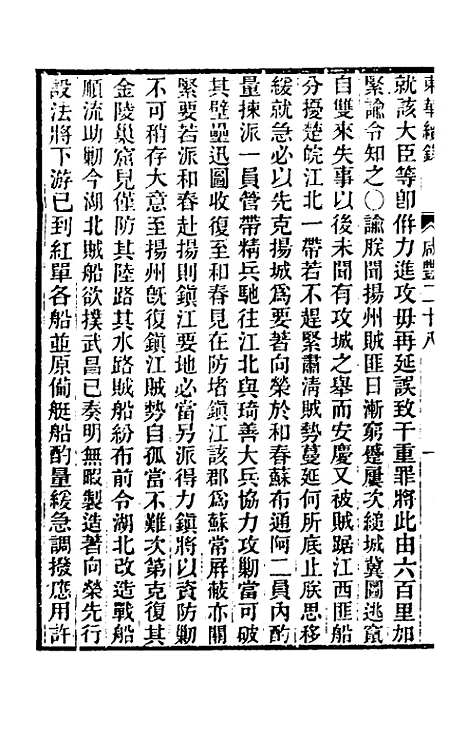 東華續錄　咸豐二十八　一
就該大臣等卽併力進攻毋再延誤致干重罪將此由六百里加
緊諭令知之〇諭朕聞揚州賊匪日漸窮蹙屢次縋城冀圖逃竄
自雙來失事以後未聞有攻城之舉而安慶又被賊踞江西匪船
分擾楚皖江北一帶若不趕緊肅淸賊勢蔓延何所底止朕思移
緩就急必以先克揚城爲要著向榮於和春蘇布通阿二員內酌
量揀派一員管帶精兵馳往江北與琦善大兵協力攻勦當可破
其壁壘迅圖收復至和春見在防堵鎭江該郡爲蘇常屏蔽亦關
緊要若派和春赴揚則鎭江要地必當另派得力鎭將以資防勦
不可稍存大意至揚州旣復鎭江賊勢自孤當不難次第克復其
金陵巢窟見僅防其陸路其水路賊船紛布前令湖北改造戰船
順流助勦今湖北賊船欲撲武昌已奏明無暇製造著向榮先行
設法將下游已到紅單各船並原僱艇船酌量緩急調撥應用許